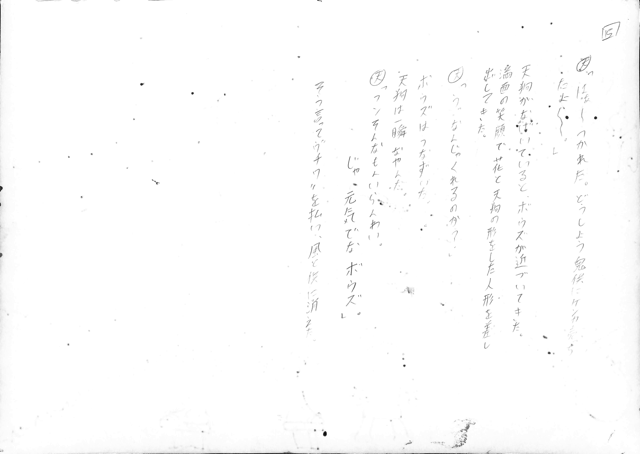 5
天「はぁーつかれた。どうしよう
たなぁ〜。」
天狗がなげいていると、ボウズが近づいてきた。
満面の笑顔で花と天狗の形をした人形を差し
出してきた。
天「う、なんじゃくれるのか?」
ボウズはうなずいた。
天狗は一瞬なやんだ。
天「フンそんなもんいらんわい。
じゃ、元気でな ボウズ」。
そう言ってうチワを払い、風と供に消